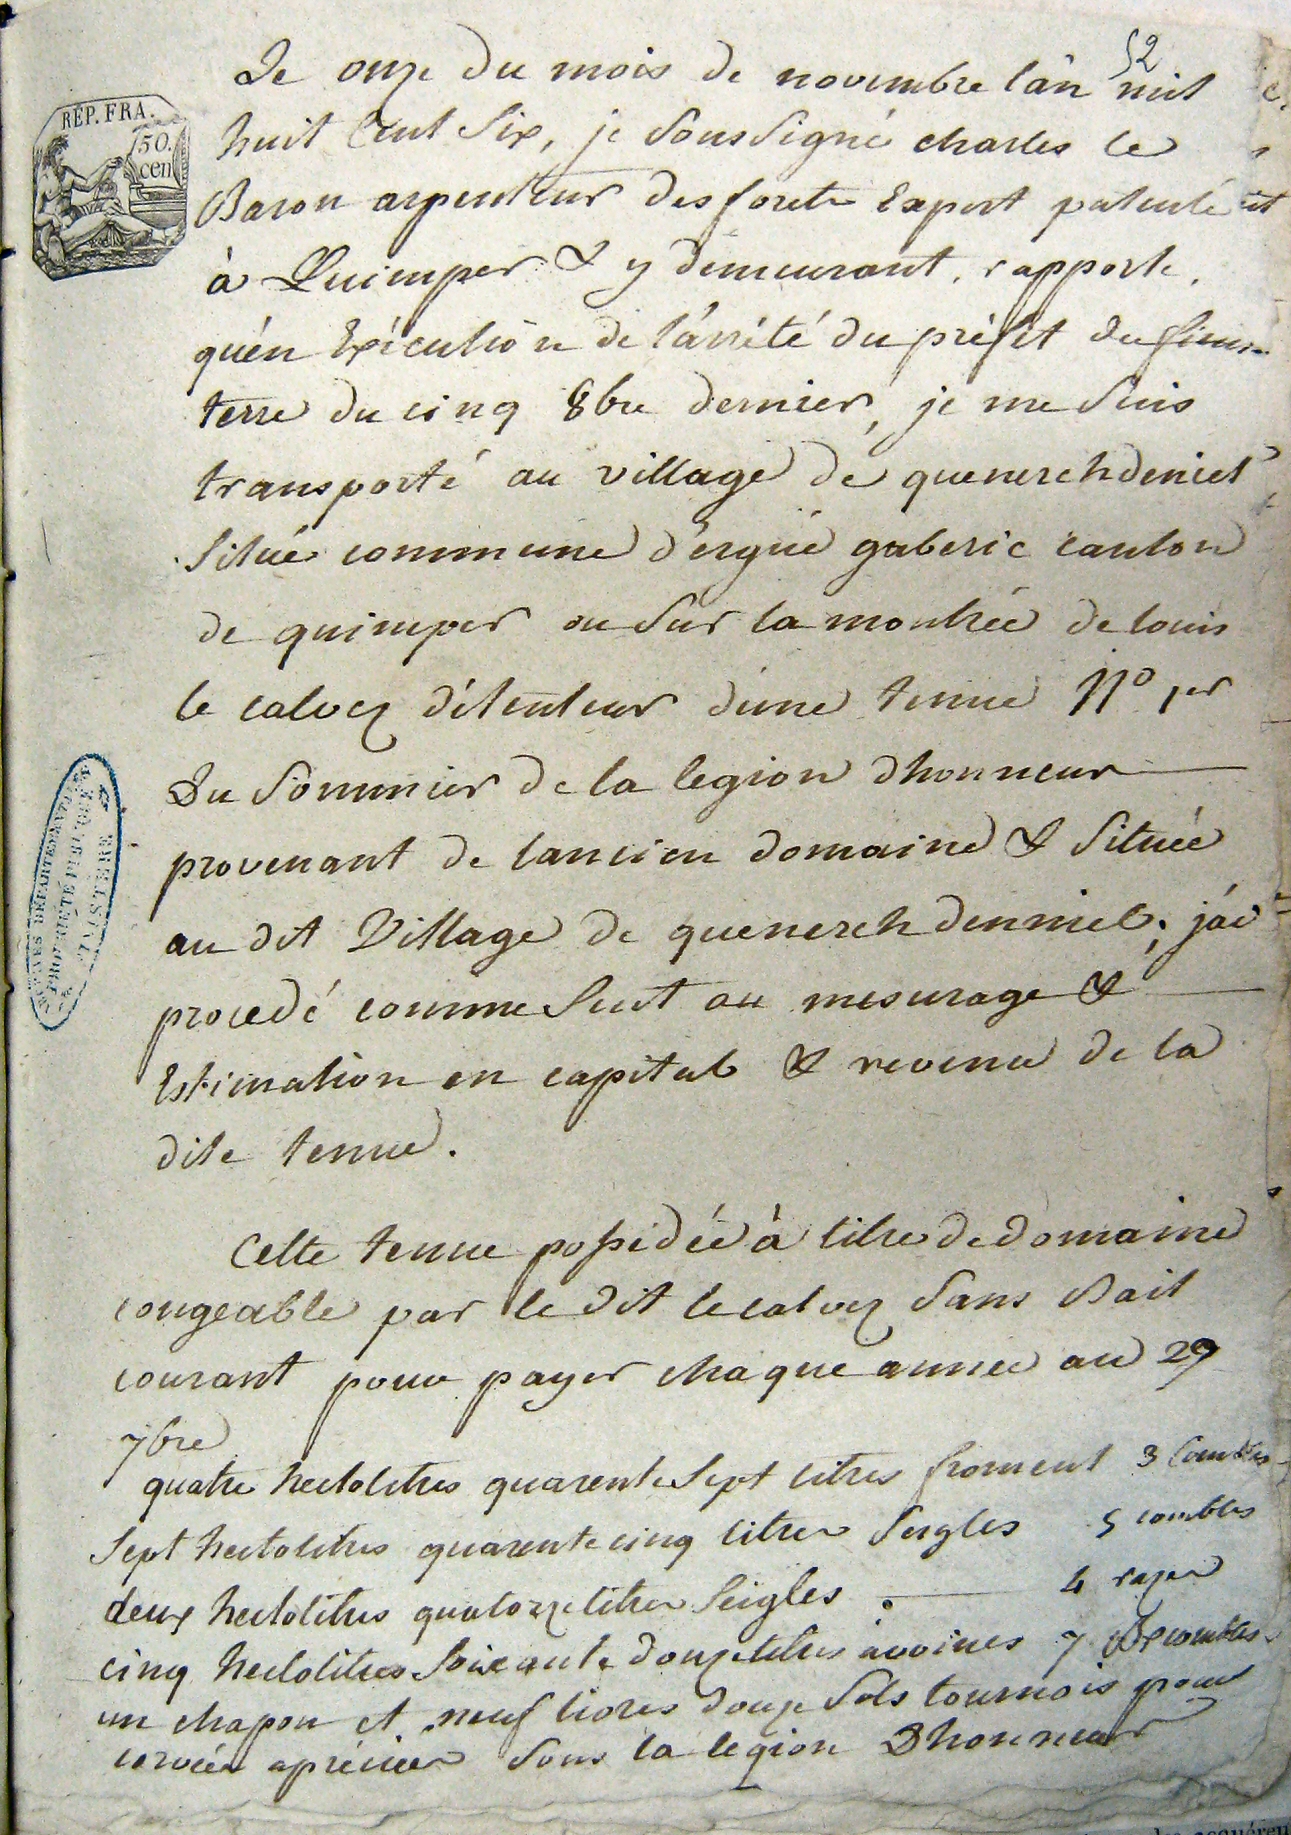 52
Le onze du mois de novembre l'an mil
REP. FRA.
50.
cen
huit Cent Six, je Soussigné charles le
Baron arpenteur des forets Expert patenté
à Quimper & y demeurant, rapporte,
qu'en Exécution de l'arrêté du préfet du finis-
terre du cinq 8bre dernier, je me Suis
transporté au village de quenerchdeniel
Situé commune d'ergüé gaberic canton
de quimper ou Sur la montrée de louis
le calvez détenteur d'une tenue N° 1er
Du Sommier de la legion dhonneur
provenant de lancien domaine & Située
au dit Village de quenerch denniel; j'ai
procedé comme Suit au mesurage &
Estimation en capital & revenu de la
dite tenue.
Cette tenue possedée à titre de domaine
congeable par le dit le calvez Sans Bail
courant pour payer chaque année au 29
7bre
quatre hectolitres quarente Sept litres froment 3 Combles
Sept hectolitres quarente cinq litres Seigles 5 combles
deux hectolitres quatorze litres Seigles 4 razes
cinq hectolitres Soixante douze litres avoines 7 combles
un chapon et neuf livres douze Sols tournois pour
corvées apréciées Sous la legion Dhonneur
ARCHIVES DÉPARTEMENTALES
PROPRIÉTÉ PUBLIQUE
FINISTERE